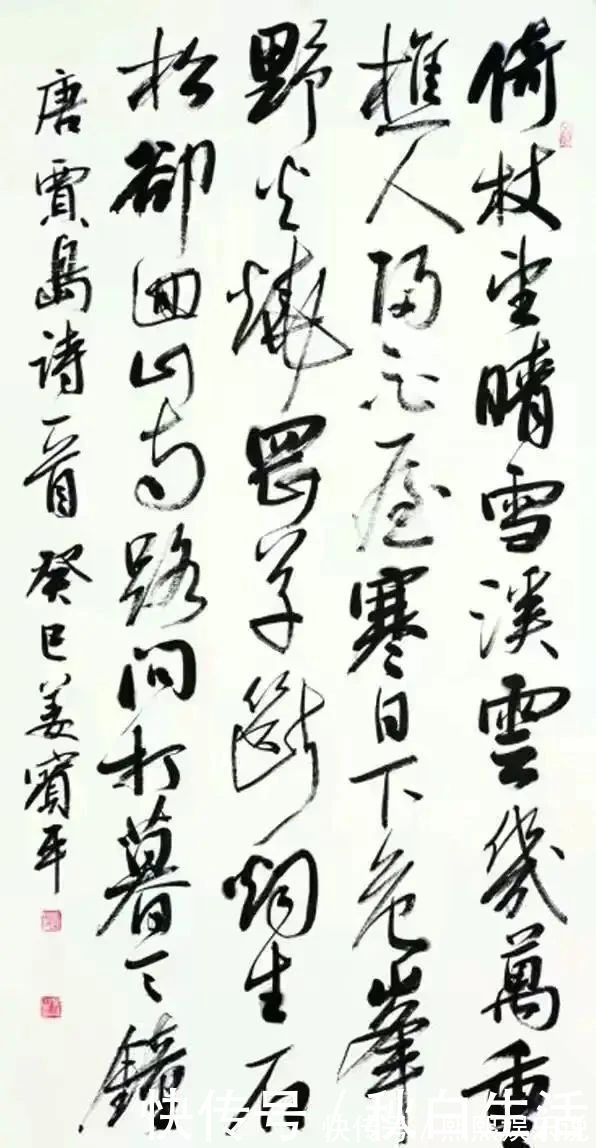 倚杖望晴雪溪雲幾萬重
樵人歸白屋寒日下危峯
野火燒岡草斷烟生石
松卻迴山寺路問打暮天鐘
唐賈島詩一首 癸巳姜賓平
快传号 /